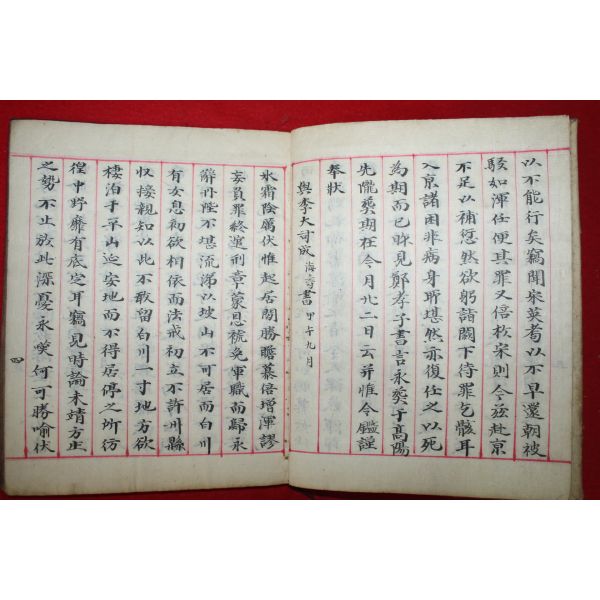 以不能行矣竊聞宋英耉以不早還朝被
駁如渾任便其罪又倍於宋則今玆赴京
不足以補愆然欲躬詣闕下待罪乞骸耳
入京諸困非病身所堪然亦復任之以死
為期而已眎見鄭孝子書言永葬于高陽
先隴葬期在今月卄二日云幷惟令鑑謹
奉狀
與李大諫成 海壽書 甲午九月
氷霜陰厲伏惟起居閒勝瞻慕倍增渾謬
妄負罪終逭刑章蒙恩褫免軍職而歸永
辭丹陛不堪流涕以坡山不可居而白川
有女息初欲相依而法戒初立不許州縣
収接親知以此不敢留白川一寸地方欲
棲泊于平山近安地而不得居停之所彷
徨中野靡有底定耳竊見時論未靖方生
之勢不止於此深憂永嘆何可勝喻伏
四